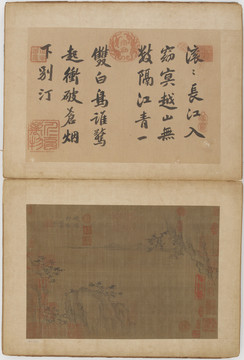 滚〻長江入
窈冥越山無
數隔江青一
雙白鳥誰驚
起衝破蒼烟
下別汀